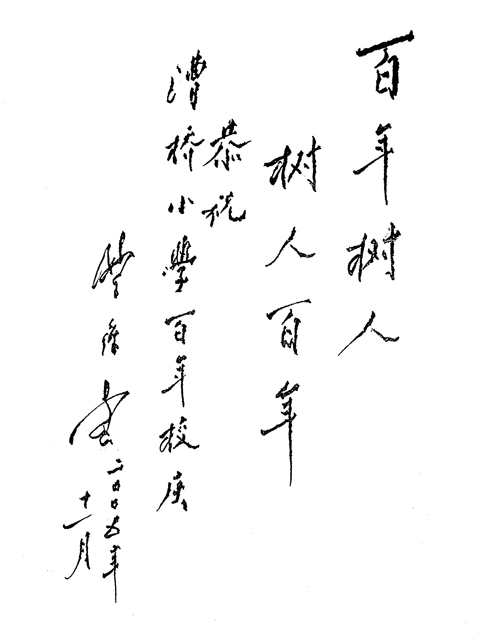 百年树人
树人百年
恭祝
漕桥小學百年校庆
二〇〇五年
十一月